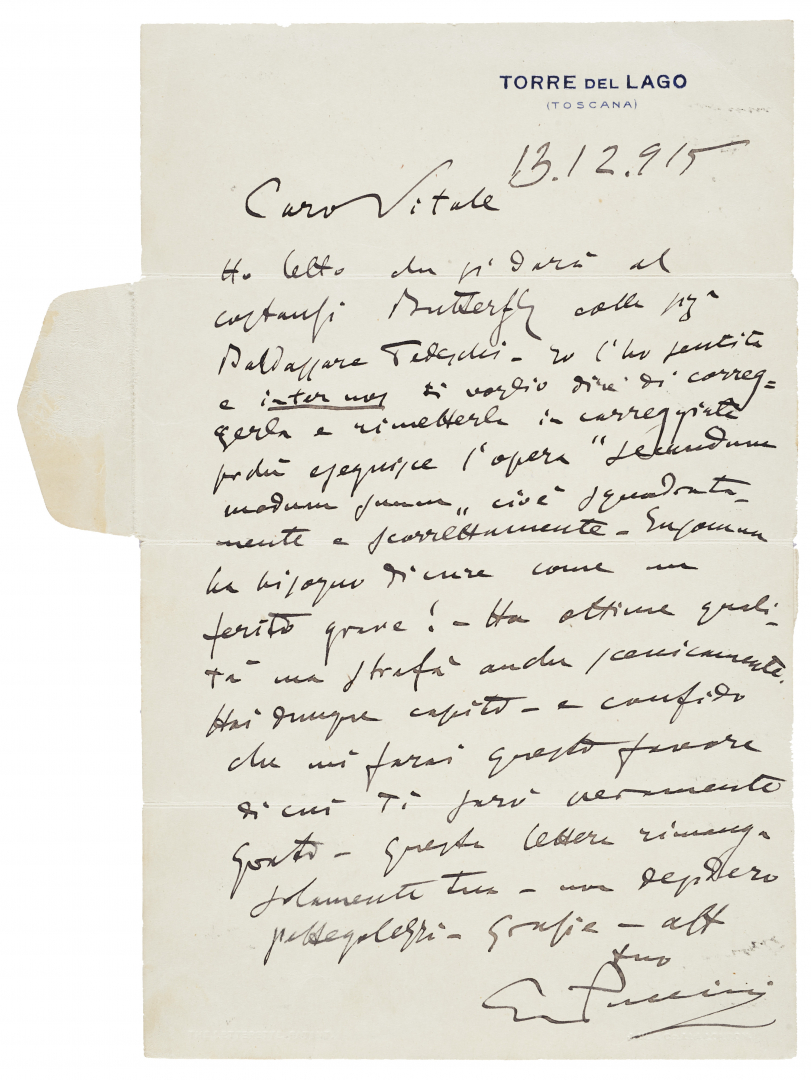 TORRE DEL LAGO
(TOSCANA)
13.12.915
Caro Vitale
Ho letto che si darà al
costanzi Butterfly colla sig.a
Baldassare Tedeschi – io l'ho sentita
e inter nos ti voglio dire di correg=
gerla e rimetterla in carreggiata
perchè eseguisce l'opera "secundum
modum suum„ cioè squadrata-
mente e scorrettamente – Insomma
ha bisogno di cure come un
ferito grave! – Ha ottime quali-
tà ma strafà anche scenicamente.
Hai dunque capito – e confido
che mi farai questo favore
di cui ti sarò veramente
grato – questa lettera rimanga
solamente tua – non desidero
pettegolezzi – Grazie – aff
tuo
G Puccini